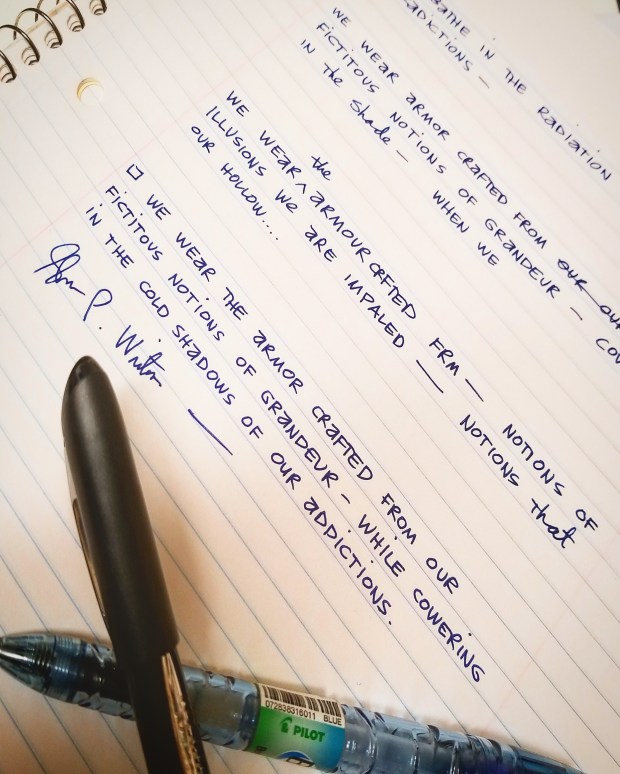 IN THE RADIATION
ADICTIONS —
WE WEAR ARMOR CRAFTED FROM OUR
FICTITOUS NOTIONS OF GRANDEUR —
IN THE Shade — WHEN WE
WE WEAR the ARMOUR CRFTED FRM — NOTIONS OF
ILLUSIONS WE ARE IMPALED — NOTIONS that
OUR HOLLOW...
WE WEAR THE ARMOR CRAFTED FROM OUR
FICTITOUS NOTIONS OF GRANDEUR – WHILE COWERING
IN THE COLD SHADOWS OF OUR ADDICTIONS.
072838316011 BLUE
PILOT